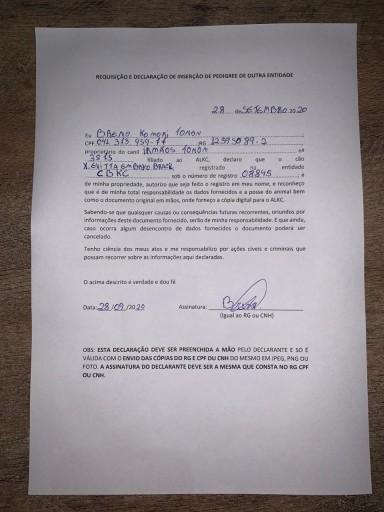 REQUISIÇÃO E DECLARAÇÃO DE INSERÇÃO DE PEDIGREE DE OUTRA ENTIDADE
28 de SETEMBRO 2020
Eu BRENO KOMORI TONON,
CPF 041 373 959-77 RG 12395089-2,
proprietário do canil IRMÃOS TONON nº
3875 filiado ao ALKC, declaro que o cão
registrado na entidade
CBKC sob o número de registro 08845, é
de minha propriedade, autorizo que seja feito o registro em meu nome, e reconheço
que é de minha total responsabilidade os dados fornecidos e a posse do animal bem
como o documento original em mãos, onde forneço a cópia digital para o ALKC.
Sabendo-se que quaisquer causas ou consequências futuras recorrentes, oriundos por
informações deste documento fornecido, serão de minha responsabilidade. E que ainda,
caso ocorra algum desencontro de dados fornecidos o documento poderá ser
cancelado.
Tenho ciência dos meus atos e me responsabilizo por ações cíveis e criminais que
possam recorrer sobre as informações aqui declaradas.
O acima descrito é verdade e dou fé
Data: 28/09/2020 Assinatura:
(Igual ao RG ou CNH)
OBS: ESTA DECLARAÇÃO DEVE SER PREENCHIDA A MÃO PELO DECLARANTE E SO É
VÁLIDA COM O ENVIO DAS CÓPIAS DO RG E CPF OU CNH DO MESMO EM JPEG, PNG OU
FOTO. A ASSINATURA DO DECLARANTE DEVE SER A MESMA QUE CONSTA NO RG CPF
OU CNH.